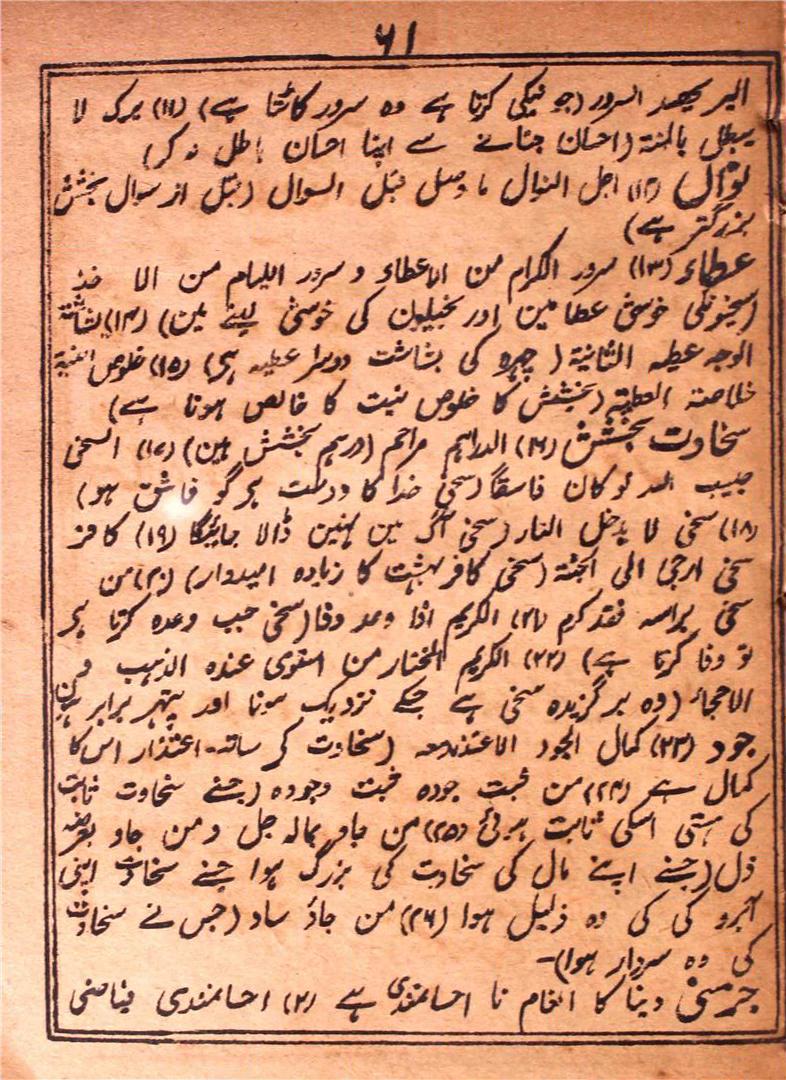 ۶۱
البر یحصد السرور (جو نیکی کرتا ہے وہ سرور کاٹتا ہے) (۱۱) برک لا
یبطل بالمنۃ (احسان جتانے سے اپنا احسان باطل نہ کر)
نوال (۱۲) اجل النوال ما وصل قبل السوال (قبل از سوال بخشش
بزرگتر ہے)
عطاء (۱۳) سرور الکرام من الاعطاء و سرور اللیام من الا خذ
(سخیونکی خوشی عطا مین اور بخیلون کی خوشی لینے مین) (۱۴) بشاشۃ
الوجہ عطیہ الثانیۃ (چہرہ کی بشاشت دوسرا عطیہ ہی) (۱۵) خلوص النیۃ
خلاصتہ العطیۃ (بخشش کا خلوص نیت کا خالص ہونا ہے)
سخاوت بخشش (۱۶) الدراہم مراحم (درہم بخشش ہین) (۱۷) السخی
حبیب اللہ لوکان فاسقاً (سخی خدا کا دوست ہر گو فاسق ہو)
(۱۸) سخی لا یدخل النار (سخی آگ مین نہین ڈالا جائیگا (۱۹) کافر
سخی ارجی الی الجنۃ (سخی کافر بہشت کا زیادہ امیدوار) (۲۰) من
سخی فقد کرم (۲۱) الکریم اذا وعد وفا (سخی جب وعدہ کرتا ہر
تو وفا کرتا ہے) (۲۲) الکریم المختار من استوی عندہ الذہب و
الاحجار (وہ برگزیدہ سخی ہے جسکے نزدیک سونا اور پتھر برابر ہین
جود (۲۳) کمال الجود الاعتذار معہ (سخاوت کر ساتہ اعتذار اس کا
کمال ہے (۲۴) من ثبت جودہ ثبت وجودہ (جسنے سخاوت ثابت
کی ہستی اسکی ثابت ہوئی (۲۵) من جاد بمالہ جل و من جاد بعرضہ
ذل (جسنے اپنے مال کی سخاوت کی بزرگ ہوا جسنے سخاوت اپنی
آبرو کی کی وہ ذلیل ہوا (۲۶) من جاد ساد (جس نے سخاوت
کی وہ سردار ہوا)-
جرمنی دینا کا انعام نا احسانمندی ہے (۲) احسانمندی فیاضی